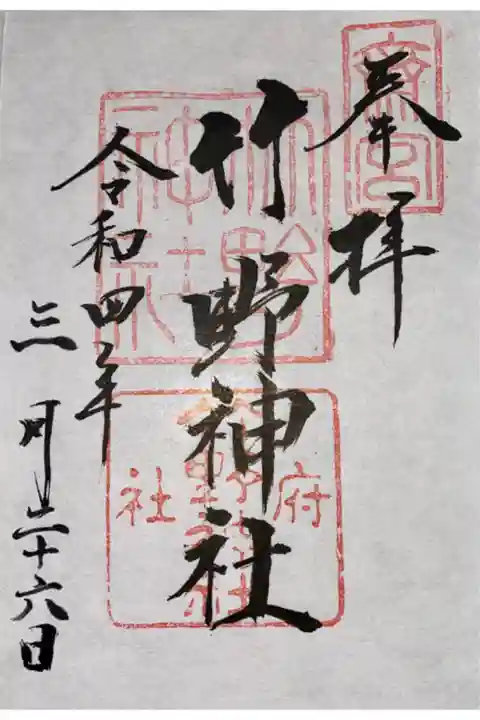 奉拝
齋宮
竹野神社
竹野神社
府社
竹野神社
令和四年
三月二十六日